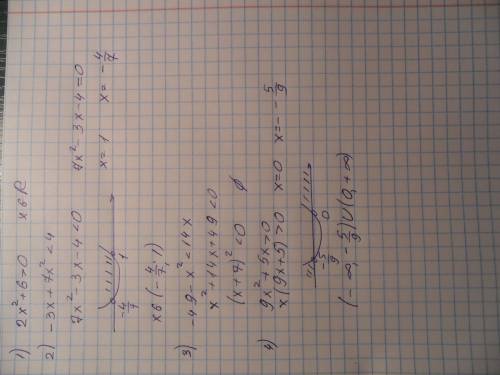 1) 2x²+6>0 x∈R
2) -3x+7x²<4
7x²-3x-4<0 7x²-3x-4=0
x=1 x=-4/7
-4/7 1
x∈(-4/7; 1)
3) -49-x²<14x
x²+14x+49<0
(x+7)²<0 ∅
4) 9x²+5x>0
x(9x+5)>0 x=0 x=--5/9
-5/9 0
(-∞,-5/9)∪(0,+∞)